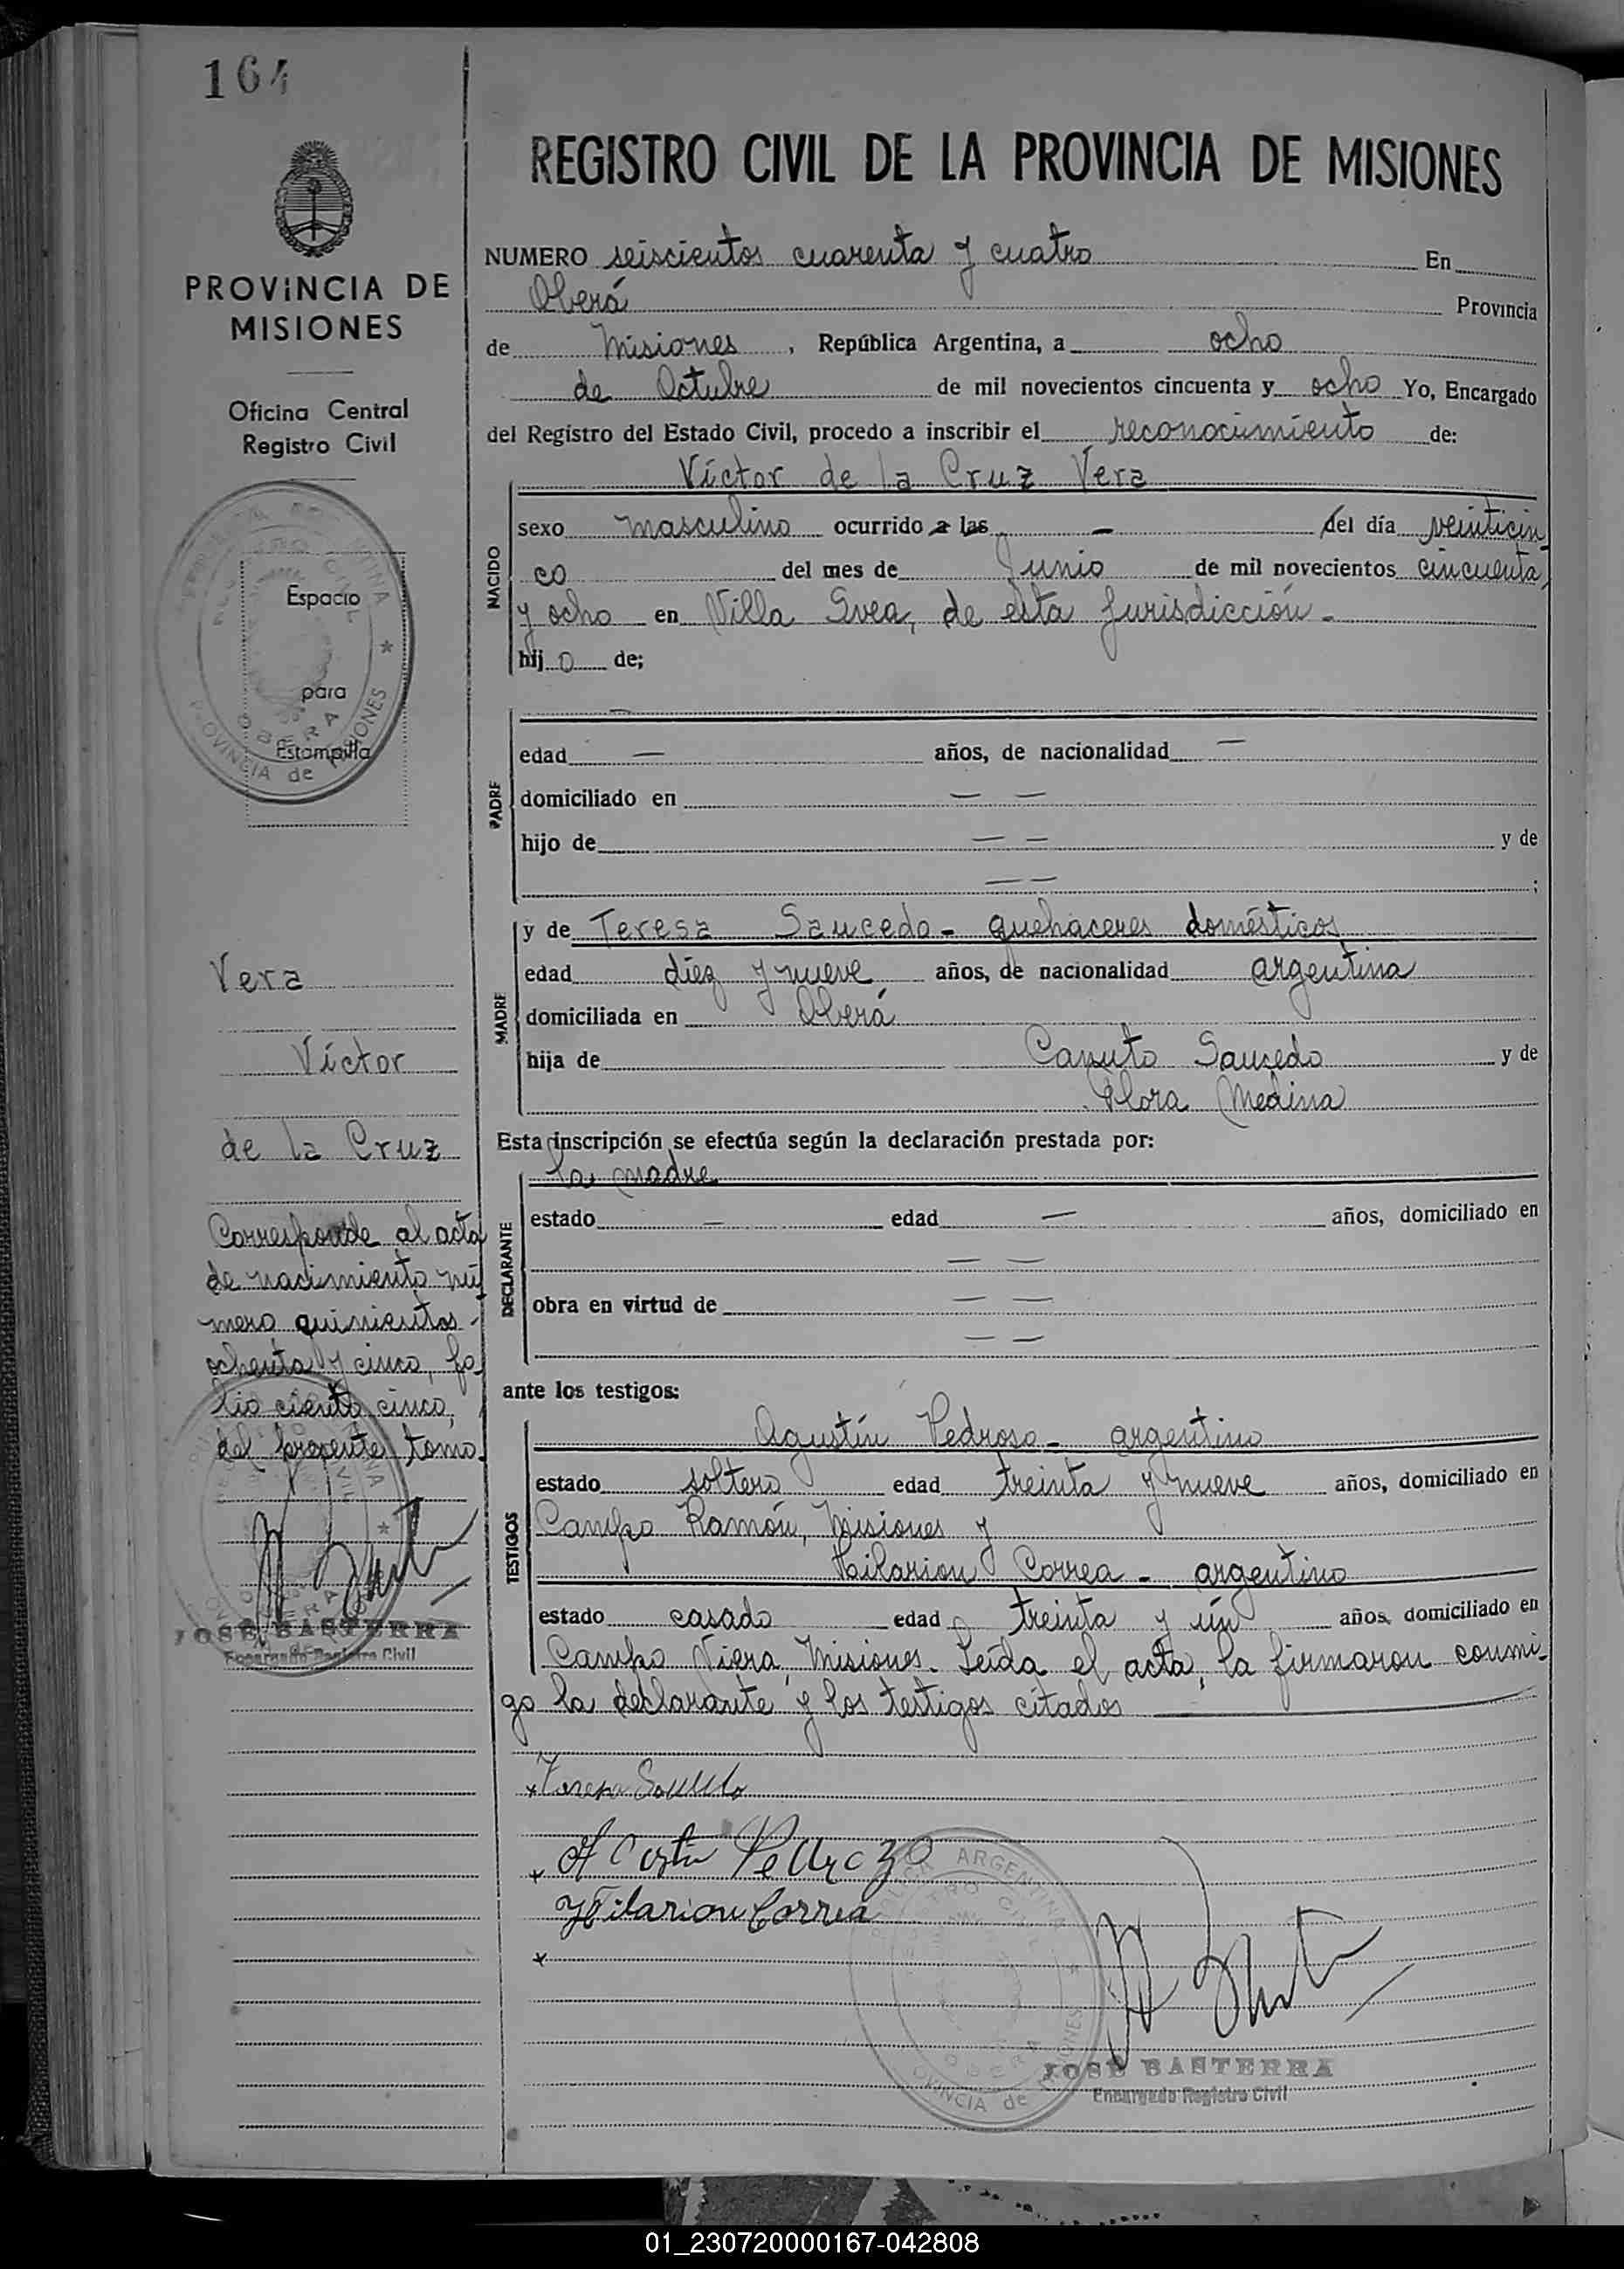 164
REGISTRO CIVIL DE LA PROVINCIA DE MISIONES
PROVINCIA DE
MISIONES
Oficina Central
Registro Civil
Espacio
para
Estampilla
NUMERO seiscientos cuarenta y cuatro En
Oberá Provincia
de Misiones, República Argentina, a ocho
de Octubre de mil novecientos cincuenta y ocho Yo, Encargado
del Registro del Estado Civil, procedo a inscribir el reconocimiento de:
Víctor de la Cruz Vera
NACIDO
sexo masculino ocurrido a las — del día veinticin
co del mes de Junio de mil novecientos cincuenta
y ocho en Villa Svea, de esta jurisdicción.-
hijo de;
PADRE
—
edad — años, de nacionalidad —
domiciliado en — —
hijo de — — y de
— — ;
MADRE
y de Teresa Saucedo - quehaceres domésticos
edad diez y nueve años, de nacionalidad argentina
domiciliada en Oberá
hija de Canuto Saucedo y de
Flora Medina
Esta inscripción se efectúa según la declaración prestada por:
la madre
DECLARANTE
estado — edad — años, domiciliado en
— —
obra en virtud de — —
— —
ante los testigos:
TESTIGOS
Agustín Pedroso - argentino
estado soltero edad treinta y nueve años, domiciliado en
Campo Ramón, Misiones y
Hilarion Correa - argentino
estado casado edad treinta y un años, domiciliado en
Campo Viera, Misiones. Leída el acta, la firmaron conmi-
go la declarante y los testigos citados
Vera
Víctor
de la Cruz
Corresponde al acta
de nacimiento nú
mero quinientos
ochenta y cinco, fo
lio ciento cinco,
del presente tomo.
JOSE BASTERRA
Encargado Registro Civil
Hilarion Correa
OBERA
PROVINCIA de MISIONES
JOSE BASTERRA
Encargado Registro Civil
01_230720000167-042808